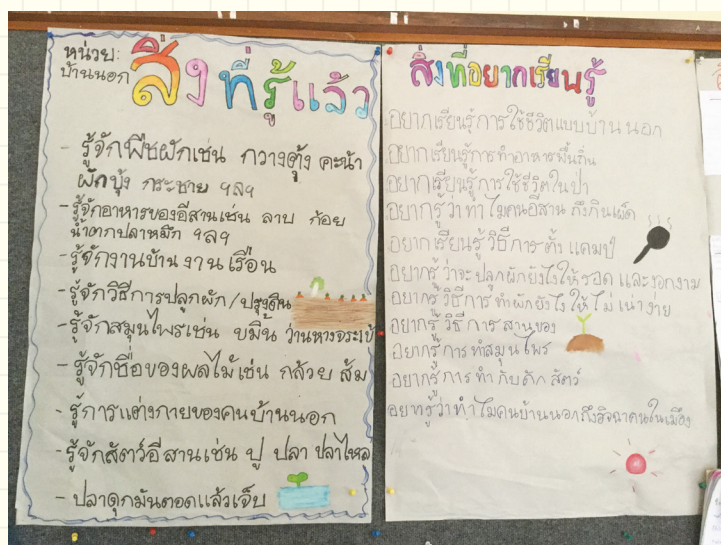 หน่วย:
บ้านนอก
สิ่งที่รู้แล้ว
- รู้จักพืชผักเช่น กวางตุ้ง คะน้า
ผักบุ้ง กระชาย ฯลฯ
- รู้จักอาหารของอีสานเช่น ลาบ ก้อย
น้ำตกปลาหมึก ฯลฯ
- รู้จักงานบ้านงานเรือน
- รู้จักวิธีการปลูกผัก/ปรุงดิน
- รู้จักสมุนไพรเช่น ขมิ้น ว่านหางจระเข้
- รู้จักชื่อของผลไม้เช่น กล้วย ส้ม
- รู้การแต่งกายของคนบ้านนอก
- รู้จักสัตว์อีสานเช่น ปู ปลา ปลาไหล
- ปลาดุกมันตอดแล้วเจ็บ
สิ่งที่อยากเรียนรู้
อยากเรียนรู้การใช้ชีวิตแบบบ้านนอก
อยากเรียนรู้การทำอาหารพื้นถิ่น
อยากเรียนรู้การใช้ชีวิตในป่า
อยากรู้ว่าทำไมคนอีสานถึงกินเผ็ด
อยากเรียนรู้วิธีการตั้งแคมป์
อยากรู้ว่าจะปลูกผักยังไงให้รอดและงอกงาม
อยากรู้วิธีการทำผักยังไงให้ไม่เน่าง่าย
อยากรู้วิธีการสานของ
อยากรู้การทำสมุนไพร
อยากรู้การทำกับดักสัตว์
อยากรู้ว่าทำไมคนบ้านนอกถึงอิจฉาคนในเมือง